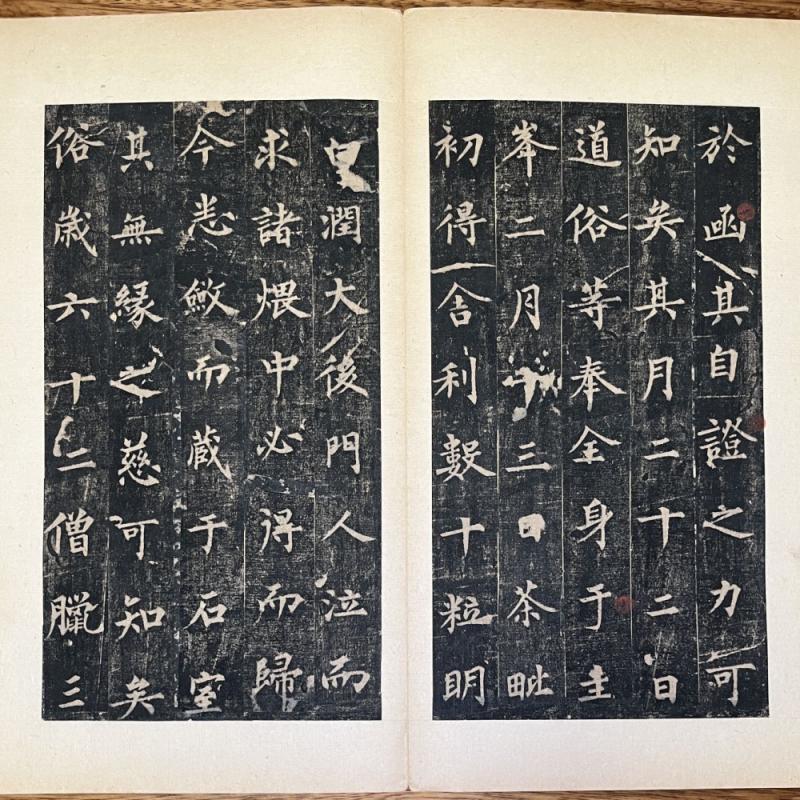 於函其自證之力可
知矣其月二十二日
道俗等奉全身于圭
峯二月三日茶毗
初得舍利數十粒明
潤大後門人泣而
求諸煨中必得而歸
今悉斂而藏于石室
其無緣之慈可知矣
俗歲六十二僧臘三